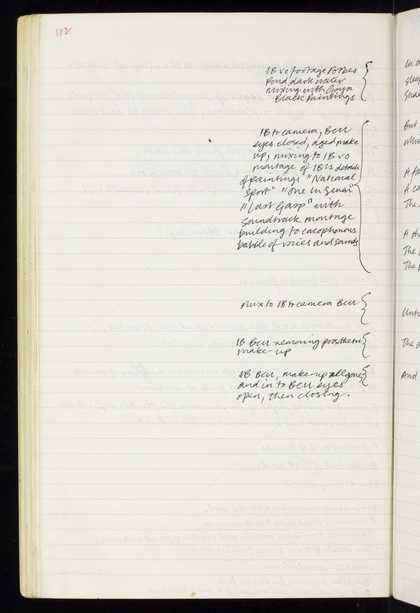 112
IB vo footage Forbes
Pond dark water
mixing with Goya
Black Paintings
IB to camera, BCU
eyes closed, aged make
up, mixing to IB vo
montage of IB's details
of paintings "National
Sport" "One in
"Last Gasp" with
soundtrack montage
building to cacophonous
babble of voices and sounds
Mix to IB to camera BCU
IB BCU removing prosthetic
make-up
IB BCU, make-up all gone
and in to BCU eyes
open, then closing.
But
The
A
The
The
The
And